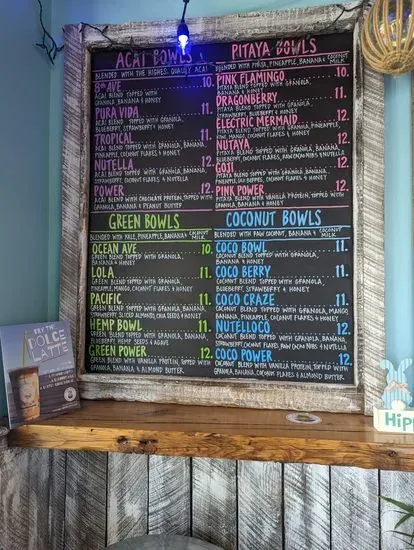 ACAI BOWLS
BLENDED WITH THE HIGHEST QUALITY ACAI
8TH AVE 10.
ACAI BLEND TOPPED WITH GRANOLA, BANANA & HONEY
PURA VIDA 11.
ACAI BLEND TOPPED WITH GRANOLA, BLUEBERRY, STRAWBERRY & HONEY
TROPICAL 11.
ACAI BLEND TOPPED WITH GRANOLA, BANANA, PINEAPPLE, COCONUT FLAKES & HONEY
NUTELLA 12.
ACAI BLEND TOPPED WITH GRANOLA, BANANA, STRAWBERRY, COCONUT FLAKES & NUTELLA
POWER 12.
ACAI BLEND WITH CHOCOLATE PROTEIN, TOPPED WITH GRANOLA, BANANA & PEANUT BUTTER
GREEN BOWLS
BLENDED WITH KALE, PINEAPPLE, BANANA & COCONUT MILK
OCEAN AVE 10.
GREEN BLEND TOPPED WITH GRANOLA, BANANA & HONEY
LOLA 11.
GREEN BLEND TOPPED WITH GRANOLA, PINEAPPLE, MANGO, COCONUT FLAKES & HONEY
PACIFIC 11.
GREEN BLEND TOPPED WITH GRANOLA, BANANA, STRAWBERRY, SLICED ALMOND, CHIA SEEDS & HONEY
HEMP BOWL 11.
GREEN BLEND TOPPED WITH GRANOLA, BANANA, BLUEBERRY, HEMP SEEDS & AGAVE
GREEN POWER 12.
GREEN BLEND WITH VANILLA PROTEIN, TOPPED WITH GRANOLA, BANANA & ALMOND BUTTER.
PITAYA BOWLS
BLENDED WITH PITAYA, PINEAPPLE, BANANA & COCONUT MILK
PINK FLAMINGO 10.
PITAYA BLEND TOPPED WITH GRANOLA, BANANA & HONEY
DRAGONBERRY 11.
PITAYA BLEND TOPPED WITH GRANOLA, STRAWBERRY, BLUEBERRY & HONEY
ELECTRIC MERMAID 11.
PITAYA BLEND TOPPED WITH GRANOLA, PINEAPPLE, KIWI, MANGO, COCONUT FLAKES & HONEY
NUTAYA 12.
PITAYA BLEND TOPPED WITH GRANOLA, BANANA, BLUEBERRY, COCONUT FLAKES, RAW CACAO NIBS & NUTELLA
GOJI 11.
PITAYA BLEND TOPPED WITH GRANOLA, BANANA, PINEAPPLE, GOJI BERRIES, COCONUT FLAKES & HONEY
PINK POWER 12.
PITAYA BLEND WITH VANILLA PROTEIN, TOPPED WITH GRANOLA, BANANA & HONEY
COCONUT BOWLS
BLENDED WITH RAW COCONUT, BANANA & COCONUT MILK
COCO BOWL 11.
COCONUT BLEND TOPPED WITH GRANOLA, BANANA & HONEY
COCO BERRY 11.
COCONUT BLEND TOPPED WITH GRANOLA, BLUEBERRY, STRAWBERRY & HONEY
COCO CRAZE 11.
COCONUT BLEND TOPPED WITH GRANOLA, MANGO, BANANA, PINEAPPLE, COCONUT FLAKES & HONEY
NUTELLOCO 12.
COCONUT BLEND TOPPED WITH GRANOLA, BANANA, STRAWBERRY, COCONUT FLAKES, RAW CACAO NIBS & NUTELLA
COCO POWER 12.
COCONUT BLEND WITH VANILLA PROTEIN, TOPPED WITH GRANOLA, BANANA, COCONUT FLAKES & ALMOND BUTTER.
TRY THE
DOLCE
LATTE
Hip